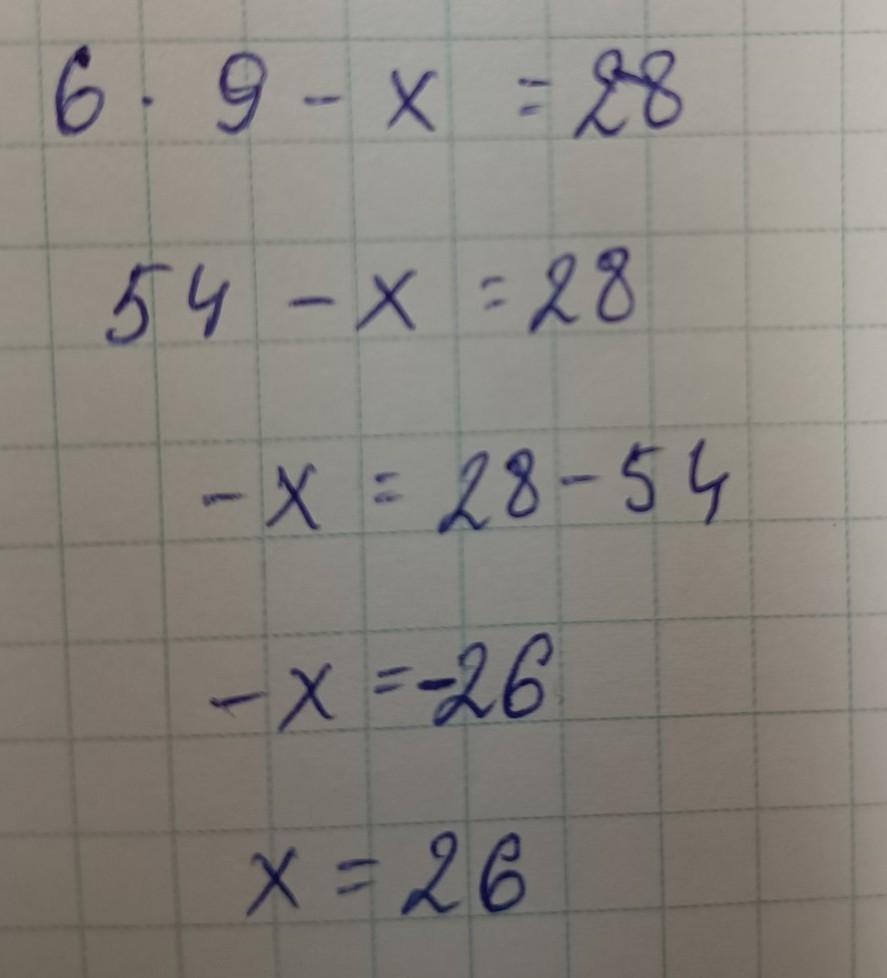 6 · 9 - x = 28
54 - x = 28
- x = 28 - 54
- x = -26
x = 26